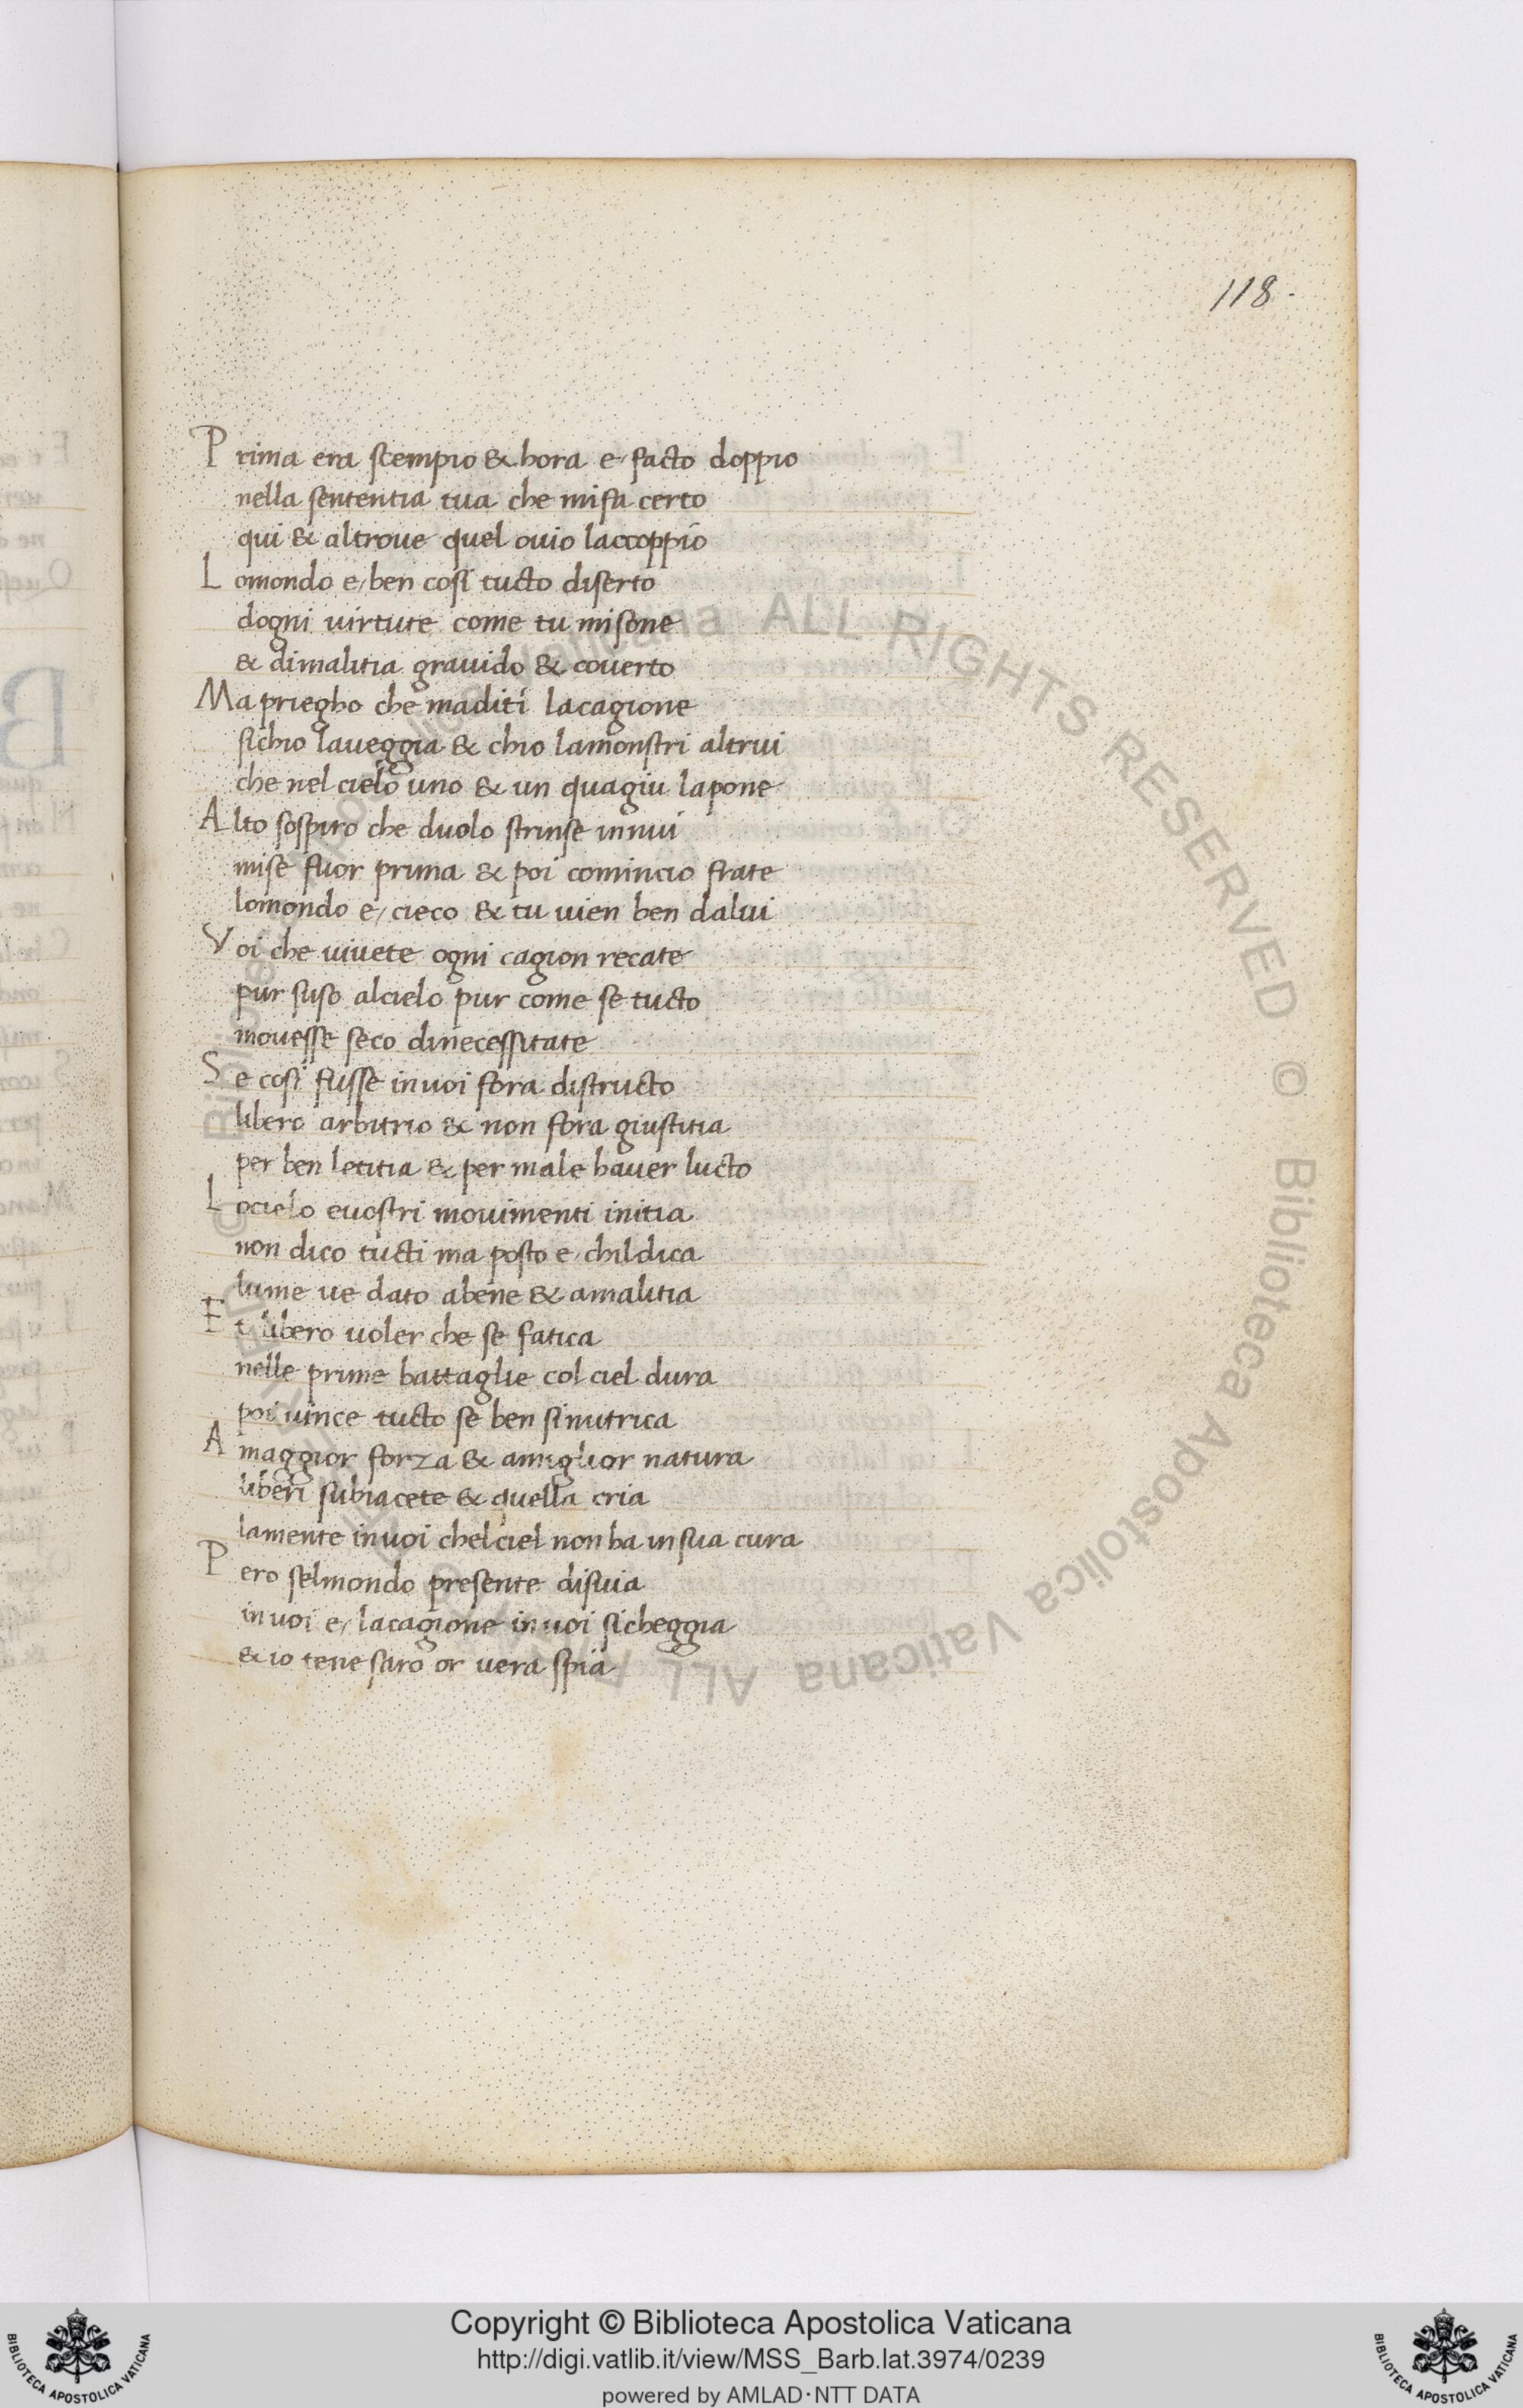 118.
Prima era scempio & hora e/ facto doppio
nella sententia tua che mifa certo
qui & altroue quel ouio laccoppio
Lomondo e/ ben cosi tucto diserto
dogni uirtute come tu misone
& dimalitia grauido & couerto
Ma priegho che maditi lacagione
sichio laueggia & chio lamonstri altrui
che nel cielo uno & un quagiu lapone
Alto sospiro che duolo strinse innui
mise fuor prima & poi comincio frate
lomondo e/ cieco & tu uien ben dalui
Voi che uiuete ogni cagion recate
pur suso alcielo pur come se tucto
mouesse seco dinecessitate
Se cosi fusse inuoi fora distructo
libero arbitrio & non fora giustitia
per ben letitia & per male hauer lucto
Locielo euostri mouimenti initia
non dico tucti ma posto e/ childica
lume ue dato abene & amalitia
Et libero uoler che se fatica
nelle prime battaglie col ciel dura
poi uince tucto se ben sinutrica
A maggior forza & amiglior natura
liberi subiacete & quella cria
lamente inuoi chelciel non ha insua cura
Pero selmondo presente disuia
inuoi e/ lacagione inuoi sicheggia
& io tene saro or uera spia
© Biblioteca Apostolica Vaticana ALL RIGHTS RESERVED
Copyright © Biblioteca Apostolica Vaticana
http://digi.vatlib.it/view/MSS_Barb.lat.3974/0239
powered by AMLAD·NTT DATA
BIBLIOTECA APOSTOLICA VATICANA
BIBLIOTECA APOSTOLICA VATICANA